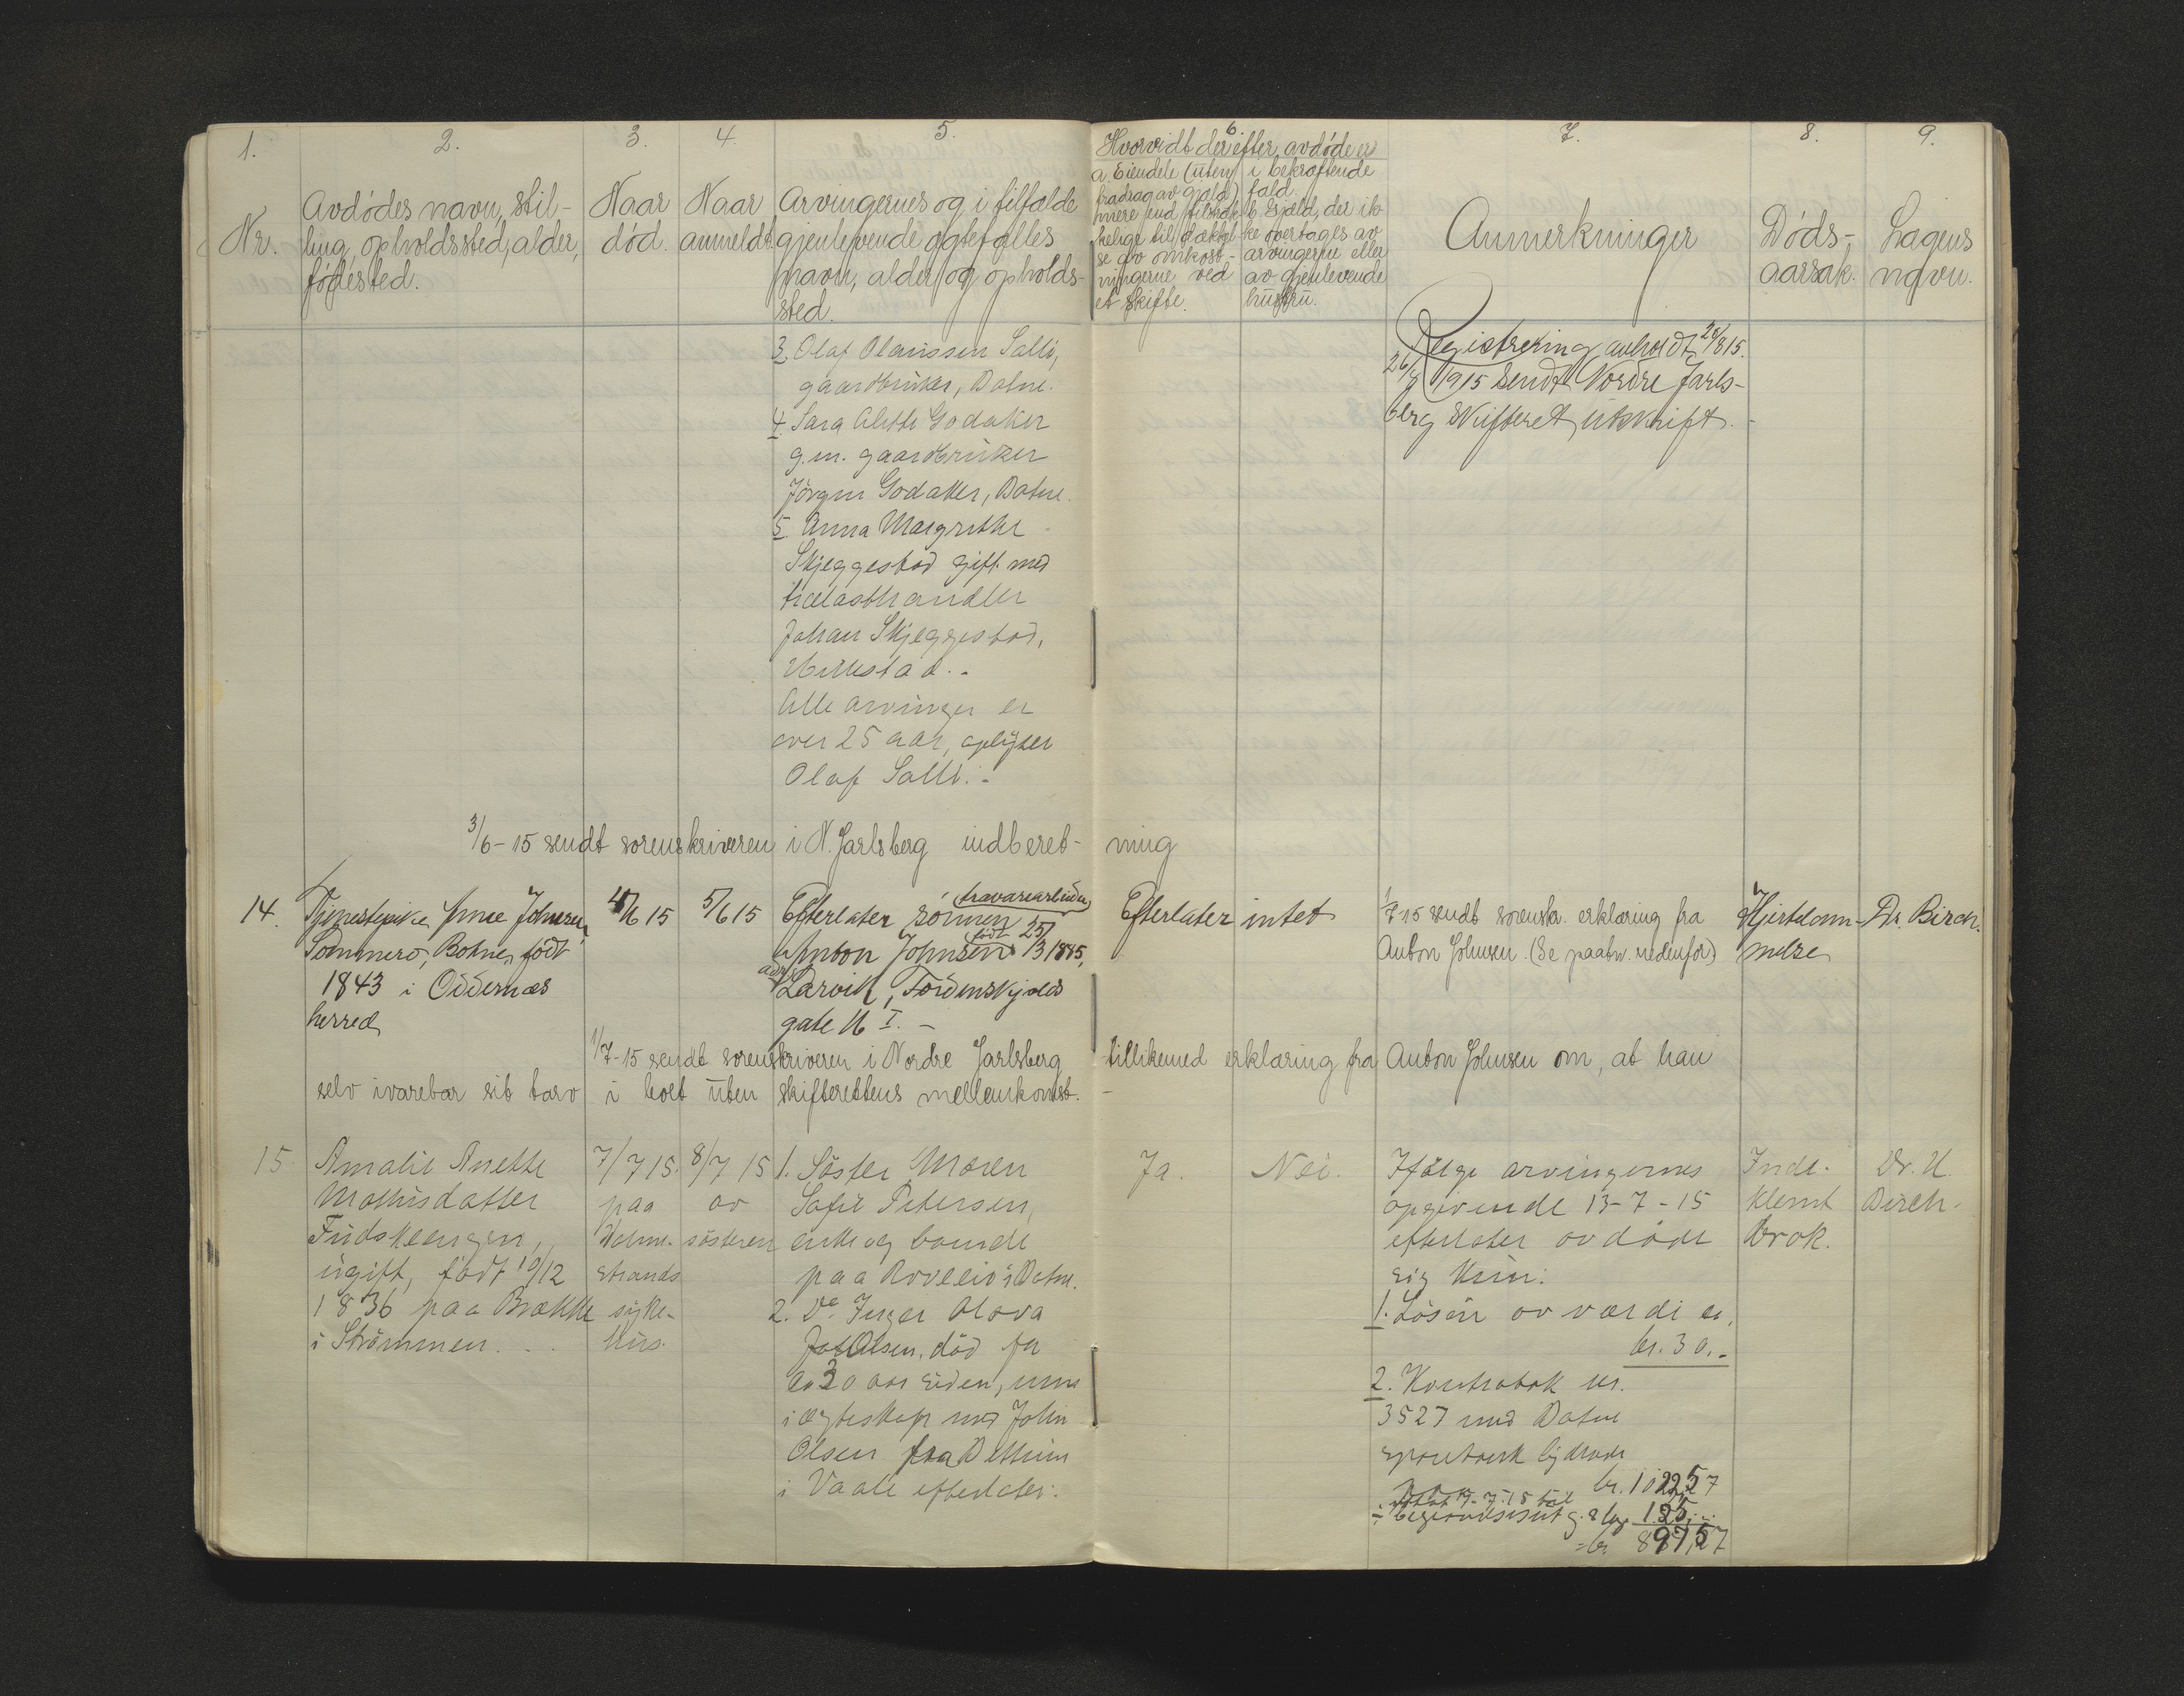 1. 2. 3. 4. 5. 6. 7. 8. 9.
Nr.
Avdødes navn, stil-
ling, opholdssted, alder,
fødested.
Naar
død.
Naar
anmeldt
Arvingernes og i tilfælde
gjenlevende egtefælles
navn, alder og opholds-
sted.
Hvorvidt der efter avdøde er
a. Eiendele (uten
fradrag av gjæld)
mere end tilstræk-
kelige til dækkel-
se av omkost-
ningerne ved
et skifte.
i bekræftende
fald.
b. Gjæld, der ik-
ke overtages av
arvingerne eller
av gjenlevende
hustru.
Anmerkninger
Døds-
aarsak.
Lægens
navn.
3. Olaf Olaussen Solli,
gaardbruker, Botne.
4. Sara Alette Godaker
g.m. gaardbruker
Jörgen Godaker, Botne.
5. Anna Margrethe
Skjeggestad gift med
trælasthandler
Johan Skjeggestad,
Alle arvinger er
over 25 aar, oplyser
Olaf Solli.-
Registrering avholdt 20/8 15.
26/8 1915 sendt Nordre Jarls-
berg skifteret utskrift.-
3/6-15 sendt sorenskriveren i N. Jarlsberg indberet- ning
14.
Tjenestepike Johnsen,
Sommero, Botne, födt
1843 i Oddernæs
herred
4/6 15
5/6 15
Efterlater sönnen travarearbeider
Anton Johnsen födt 25/3 1885,
adr. Larvik, Tordenskjolds
gate 16 I. -
Efterlater intet
1/7 15 sendt sorenskr. erklæring fra
Anton Johnsen. (Se paategn. nedenfor)
Hjertelam-
melse
Dr. Birch.
1/7-15 sendt sorenskriveren i Nordre Jarlsberg tillikemed erklæring fra Anton Johnsen om, at han
selv ivaretar sit tarv i boet uten skifterettens mellemkomst. -
15.
Amalie Anette
Mathisdatter
Fudskeengen,
ugift, födt 10/12
1836 paa Brække
i Strömmen. . .
7/7 15.
paa
Holme-
strands
syke-
hus.
8/7 15
av
søsteren
1. Søster Maren
Sofie Petersen,
enke og boende
paa Rovelio i Botne.
2. Do Inger Olava
Olsen, död for
ca 30 aar siden, men
i egteskap med John
Olsen fra
i Vaale efterlater:
Ja.
Nei.
Ifölge arvingernes
opgivende 13-7-15
efterlater avdøde
sig kun:
1. Løsøre av værdi ca.
kr. 30.-
2. Kontrabok nr.
3527 med Botne
sparebank lydende
kr. 1022,57
÷ uttat 17-7-15 til
begravelsesutg. 125,-
= kr. 897,57
Inde-
klemt
brok.
Dr. U.
Birch.